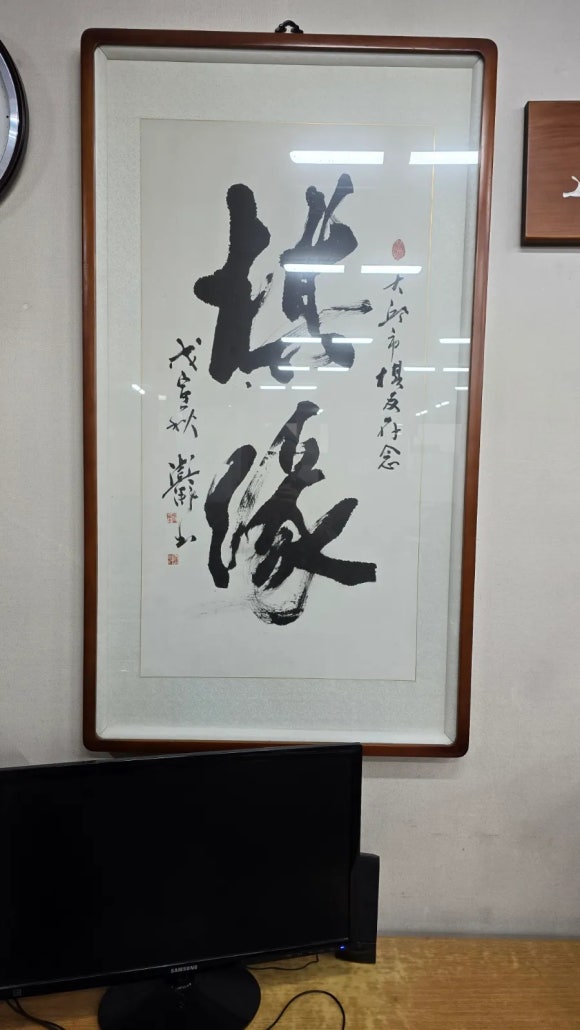 棋緣
大邱市棋友存念
戊寅秋
山
SAMSUNG